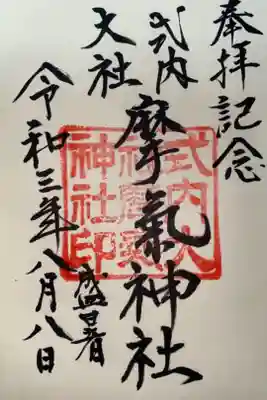 奉拝記念
式内
大社
摩氣神社
令和三年八月八日
盛暑
式内大
神社印